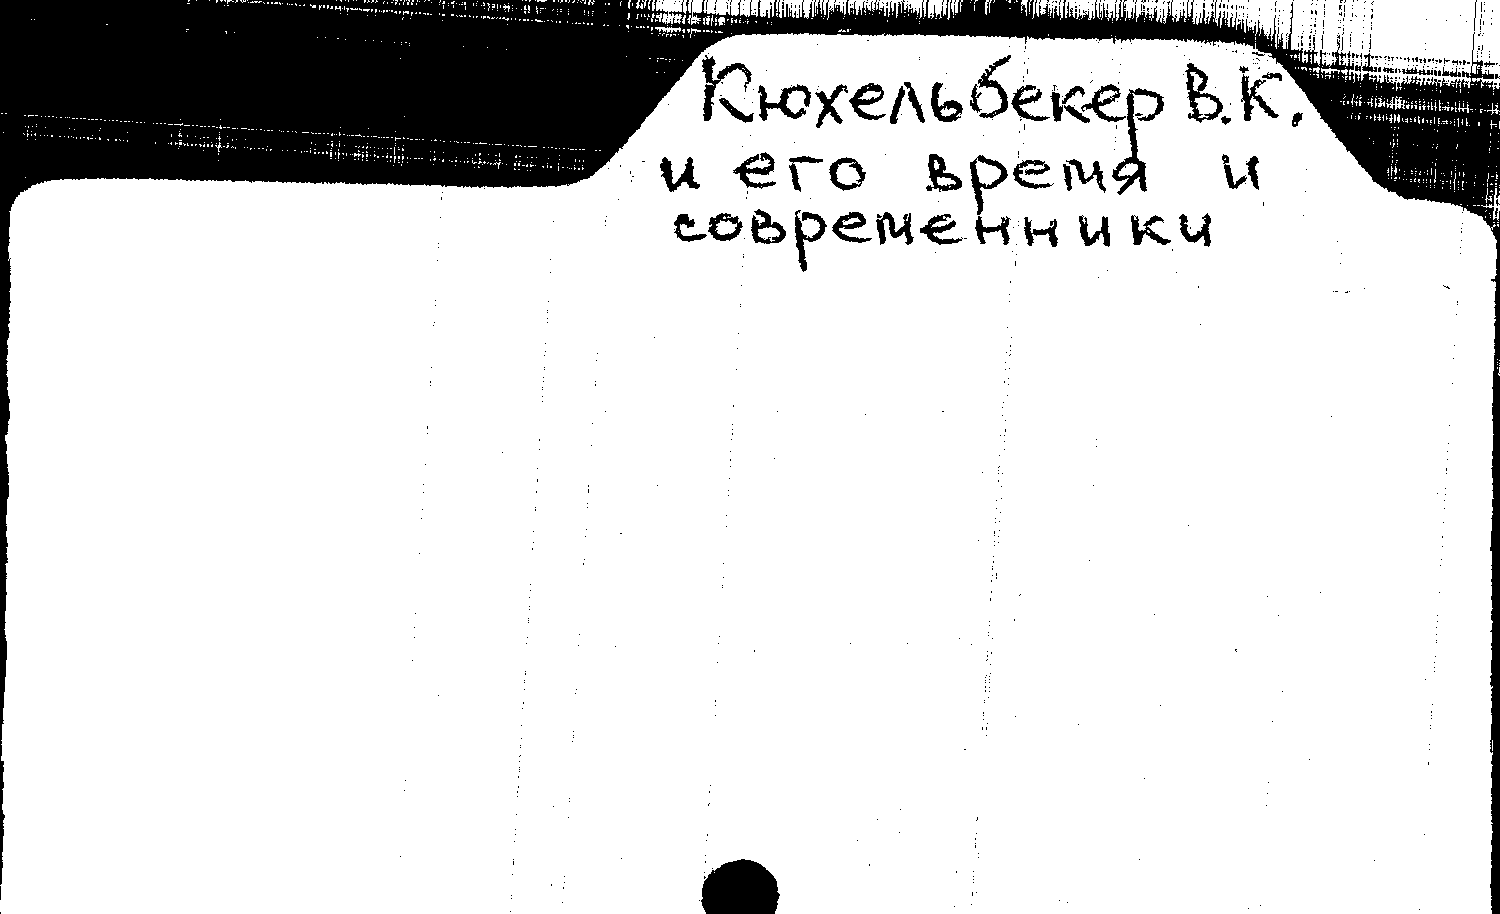 Кюхельбекер В.К.
и его время и
современники